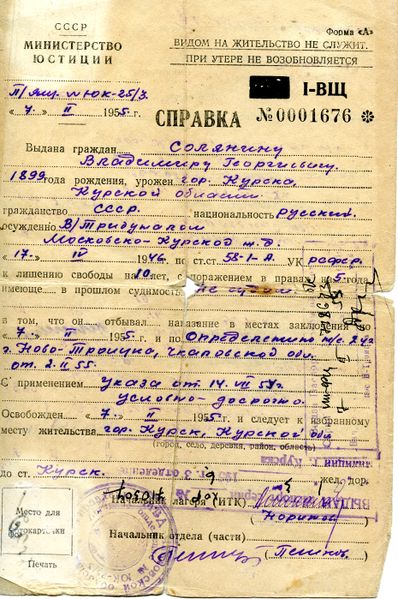 СССР
МИНИСТЕРСТВО
ЮСТИЦИИ
Форма «А»
ВИДОМ НА ЖИТЕЛЬСТВО НЕ СЛУЖИТ.
ПРИ УТЕРЕ НЕ ВОЗОБНОВЛЯЕТСЯ
П/Ящ. № ЮК-25/3.
„7“ II 1955г.
I-ВЩ
СПРАВКА №0001676 ✻
Выдана граждан Солянину
Владимиру Георгиевичу
1899 года рождения, урожен гор. Курска,
Курской области
гражданство СССР. национальность русский.
осужденно В/Трибуналом
Московско-Курской ж.д.
„17.“ IV 1946г. по ст.ст. 58-1-А. УК РСФСР.
к лишению свободы на 10 л., с поражением в правах на 5 года
имеюще в прошлом судимость не судим.
в том, что он отбывал наказание в местах заключения по
„7“ II 1955г. и по определению
г. Ново-Троицка, Чкаловской обл.
от. 2. II 55.
С применением Указа от 14. VII 54г.
условно-досрочно.
Освобожден „7“ II 1955г. и следует к избранному
месту жительства гор. Курск, Курской обл
(город, село, деревня, район, область)
до ст. Курск. жел. дор.
Начальник лагеря (ИТК)
Место для
фотокарточки
Печать
Начальник отдела (части)